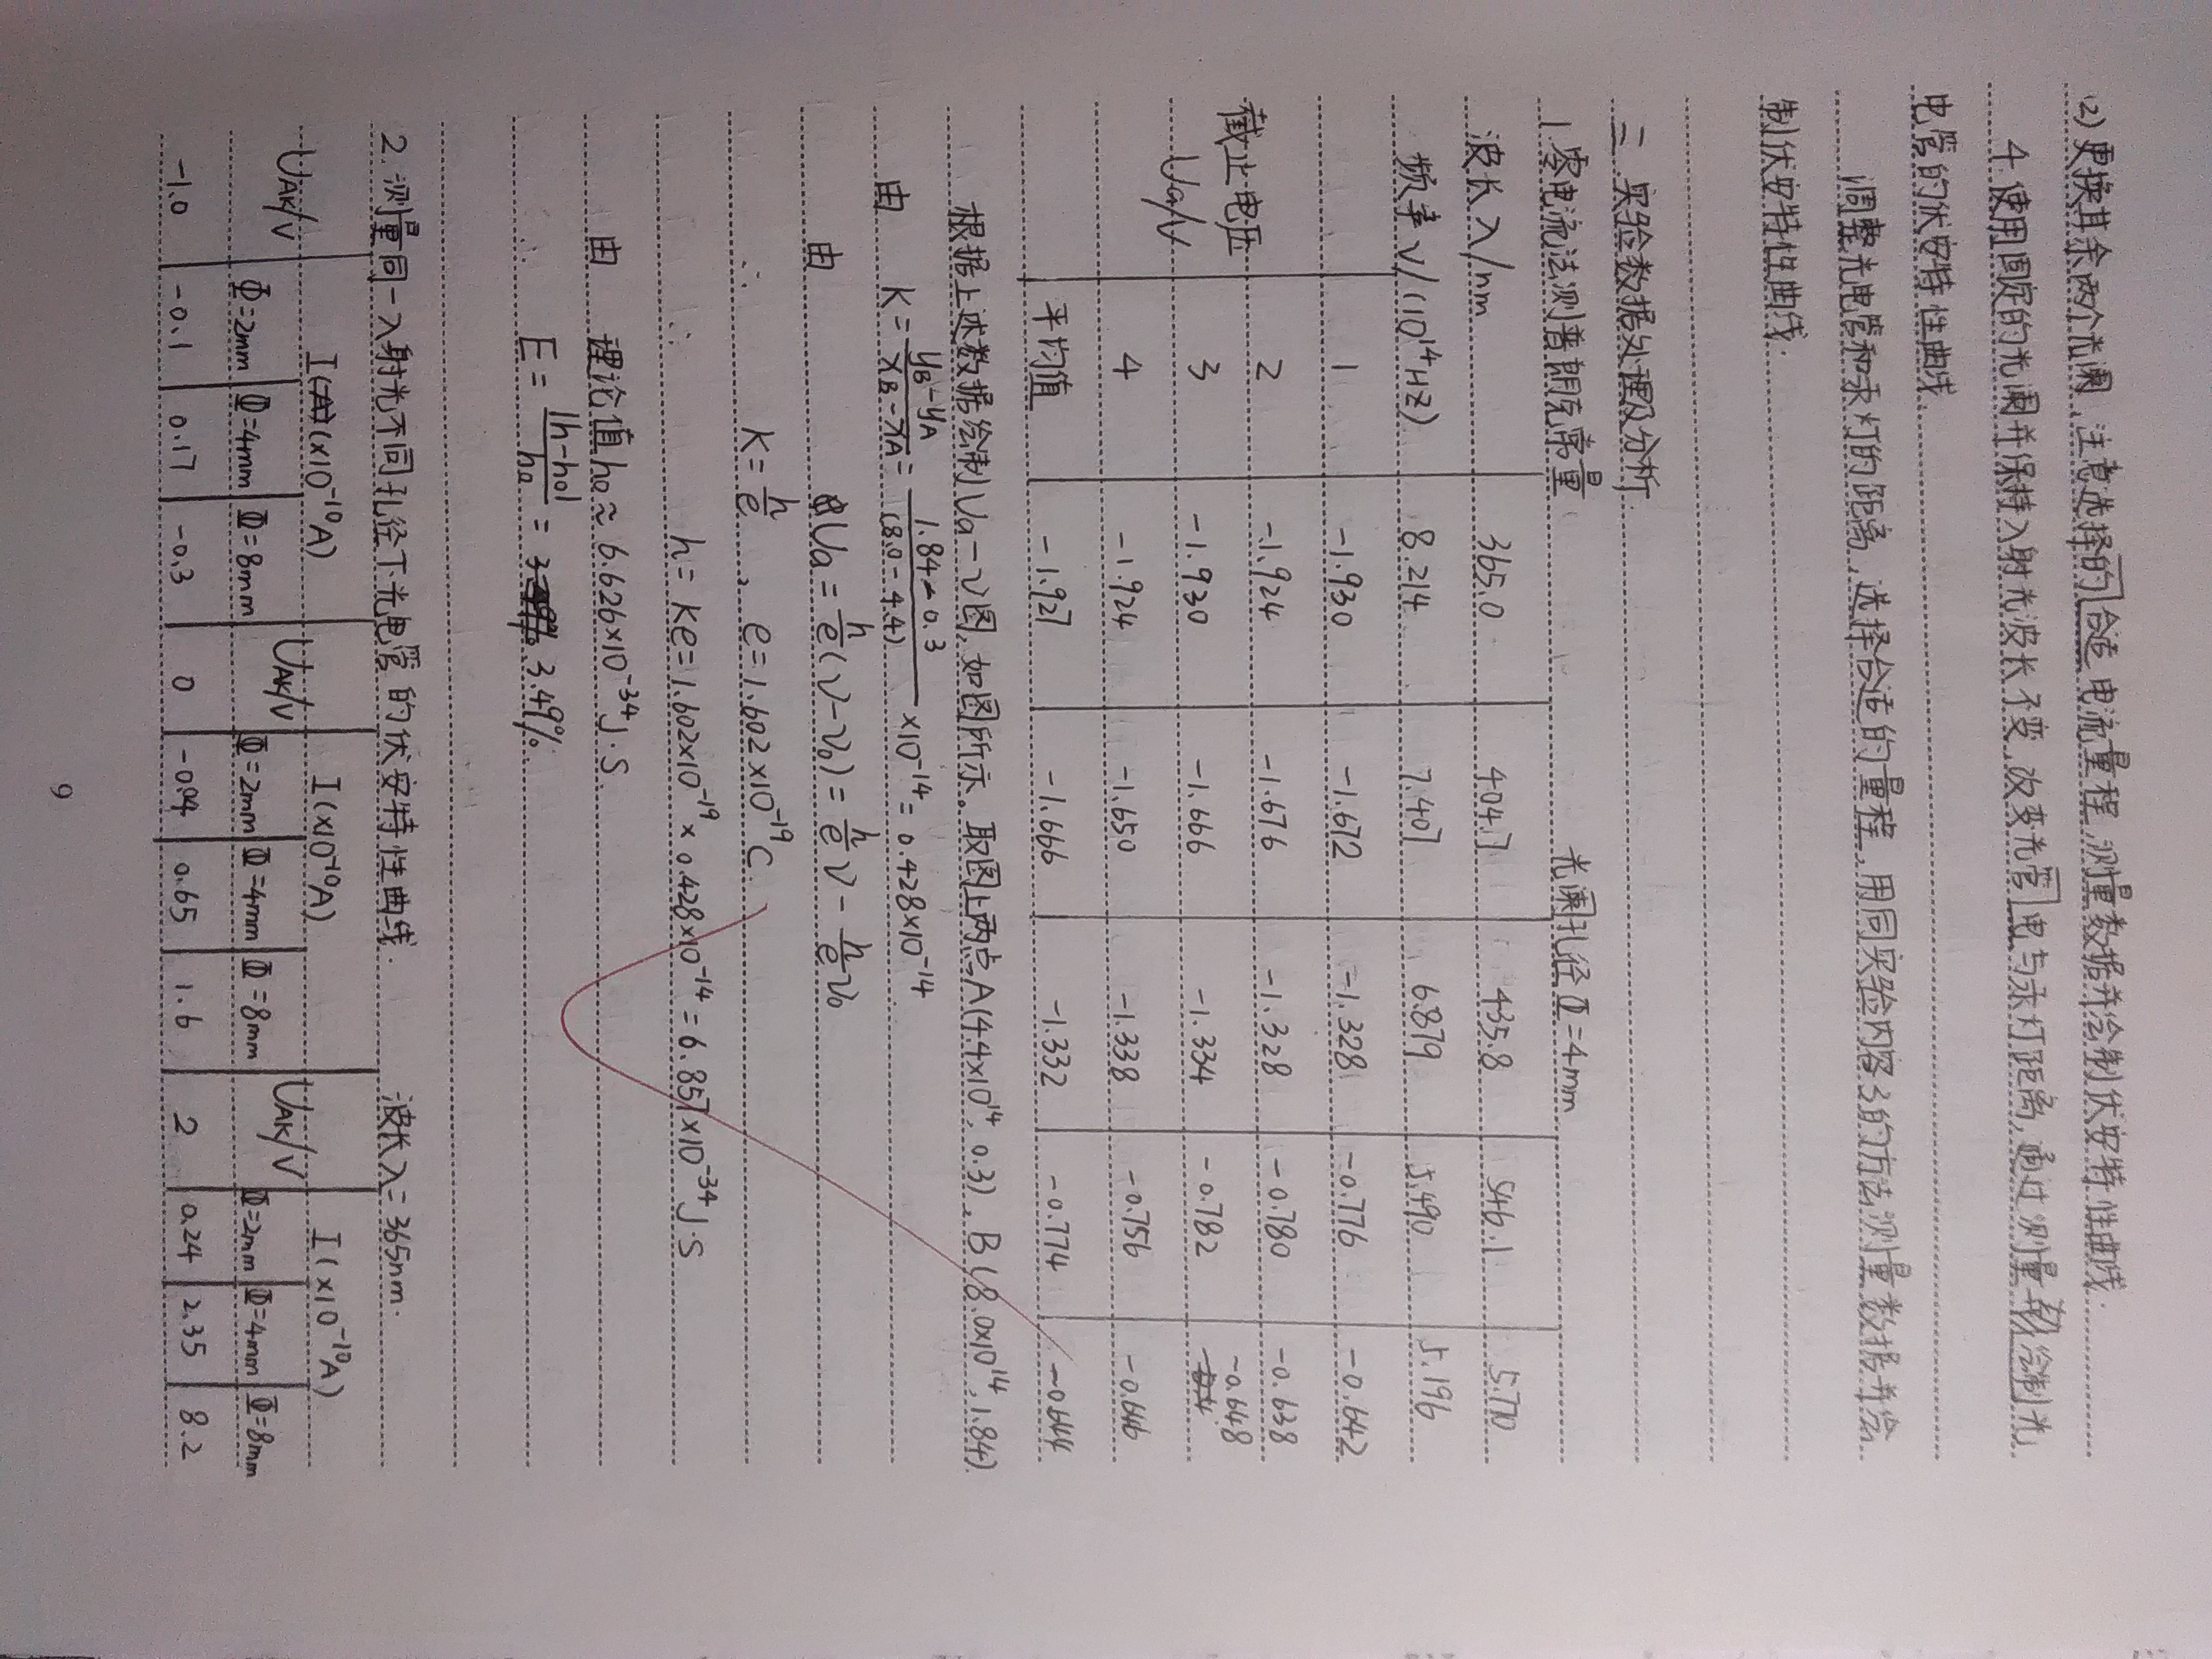 (2) 更换其余两个光阑，注意选择的合适电流量程，测量数据并绘制伏安特性曲线.
4. 使用固定的光阑并保持入射光波长不变，次变光管电与汞灯距离，通过测量 绘制光
电管的伏安特性曲线.
调整光电管和汞灯的距离，选择合适的量程，用同实验内容3的方法测量数据并绘
制伏安特性曲线.
二. 实验数据处理及分析
1. 零电流法测普朗克常量 光阑孔径Φ=4mm
波长λ/nm 365.0 404.7 435.8 546.1 5.770
频率ν/(10¹⁴HZ) 8.214 7.407 6.879 5.490 5.196
1 -1.930 -1.672 -1.328 -0.776 -0.642
截止电压 2 -1.924 -1.676 -1.328 -0.780 -0.638
Ua/V 3 -1.930 -1.666 -1.334 -0.782 -0.648
4 -1.924 -1.650 -1.338 -0.756 -0.646
平均值 -1.927 -1.666 -1.332 -0.774 -0.644
根据上述数据绘制Ua-ν图，如图所示。取图上两点A(4.4×10¹⁴, 0.3)、B(8.0×10¹⁴, 1.84)
由 K=(yB-yA)/(xB-xA)=(1.84-0.3)/(8.0-4.4)×10⁻¹⁴=0.428×10⁻¹⁴
由 Ua=h/e(ν-ν₀)=h/e ν-h/e ν₀
∴ K=h/e, e=1.602×10⁻¹⁹C
∴ h=Ke=1.602×10⁻¹⁹×0.428×10⁻¹⁴=6.857×10⁻³⁴J·S
由 理论值h₀≈6.626×10⁻³⁴J·S.
∴ E=|h-h₀|/h₀=3.49%.
2. 测量同一入射光不同孔径下光电管的伏安特性曲线. 波长λ=365nm.
UAK/V I(×10⁻¹⁰A) UAK/V I(×10⁻¹⁰A) UAK/V I(×10⁻¹⁰A)
Φ=2mm Φ=4mm Φ=8mm Φ=2mm Φ=4mm Φ=8mm Φ=2mm Φ=4mm Φ=8mm
-1.0 -0.1 0.17 -0.3 0 -0.04 0.65 1.6 2 0.24 2.35 8.2
9